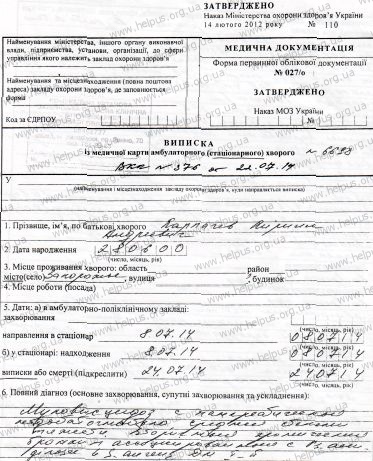 ЗАТВЕРДЖЕНО
Наказ Міністерства охорони здоров'я України
14 лютого 2012 року № 110
Найменування міністерства, іншого органу виконавчої
влади, підприємства, установи, організації, до сфери
управління якого належить заклад охорони здоров'я
МЕДИЧНА ДОКУМЕНТАЦІЯ
Форма первинної облікової документації
№ 027/о
Найменування та місцезнаходження (повна поштова
адреса) закладу охорони здоров'я, де заповнюється
форма
ЗАТВЕРДЖЕНО
Наказ МОЗ України
Код за ЄДРПОУ
№
ВИПИСКА
із медичної карти амбулаторного (стаціонарного) хворого № 6693
ВКК № 376 от 22.07.14
У
(найменування і місцезнаходження закладу охорони здоров'я, куди направляється виписка)
1. Прізвище, ім'я, по батькові хворого
2. Дата народження 280600
(число, місяць, рік)
3. Місце проживання хворого: область район
місто(село) , вулиця , будинок
4. Місце роботи (посада)
5. Дати: а) в амбулаторно-поліклінічному закладі:
захворювання
(число, місяць, рік)
направлення в стаціонар 8.07.14 080714
(число, місяць, рік)
б) у стаціонарі: надходження 8.07.14 080714
(число, місяць, рік)
виписки або смерті (підкреслити) 24.07.14 240714
(число, місяць, рік)
6. Повний діагноз (основне захворювання, супутні захворювання та ускладнення):
Муковисцидоз с
www.helpus.org.ua